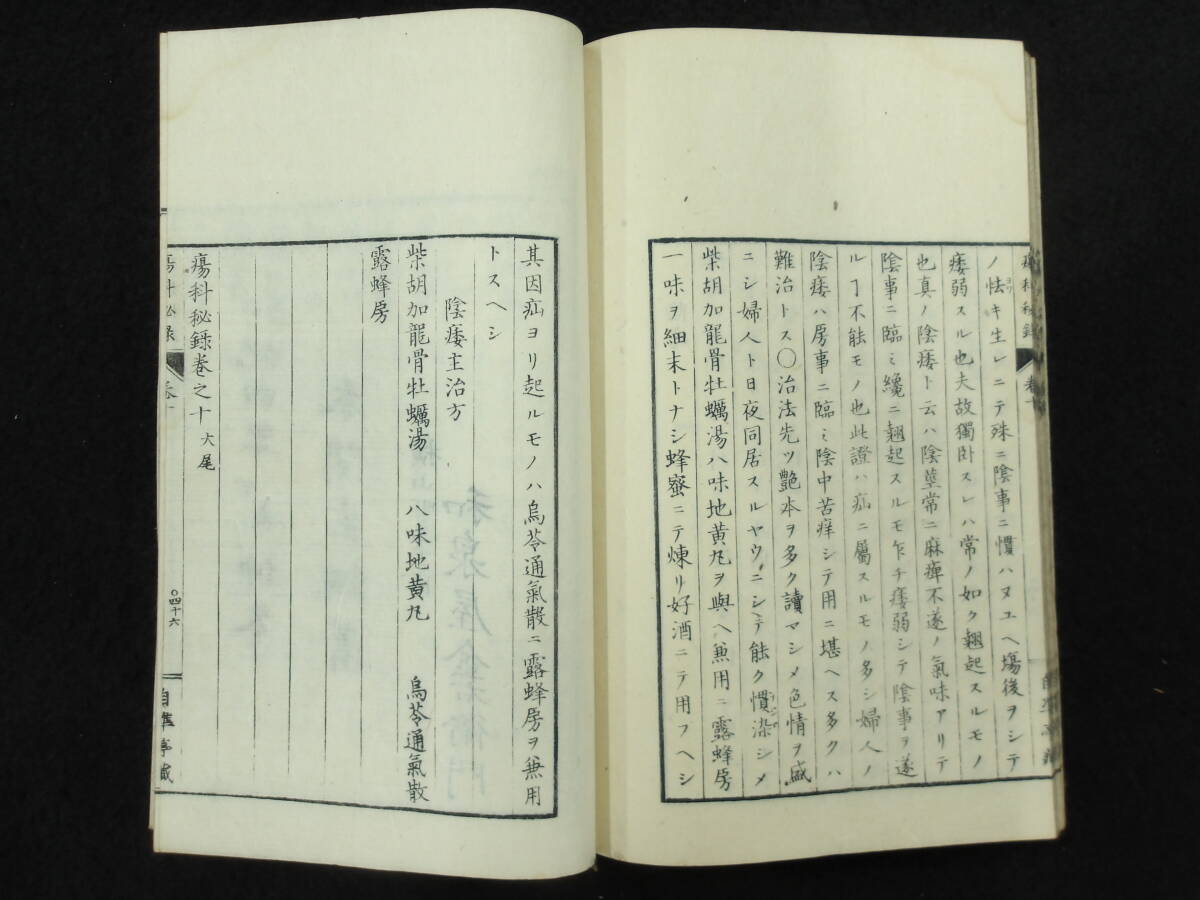 ノ怯キ生レニテ殊ニ陰事ニ慣ハヌユヘ塲後ヲシテ
痿弱スル也夫故獨卧スレハ常ノ如ク翹起スルモノ
也真ノ陰痿ト云ハ陰莖常ニ麻痺不遂ノ氣味アリテ
陰事ニ臨ミ纔ニ翹起スルモ乍チ痿弱シテ陰事ヲ遂
ルヿ不能モノ也此證ハ疝ニ屬スルモノ多シ婦人ノ
陰痿ハ房事ニ臨ミ陰中苦痒シテ用ニ堪ヘス多クハ
難治トス〇治法先ツ艷本ヲ多ク讀マシメ色情ヲ盛
ニシ婦人ト日夜同居スルヤウニシテ能ク慣染シメ
柴胡加龍骨牡蠣湯八味地黄丸ヲ與ヘ兼用ニ露蜂房
一味ヲ細末トナシ蜂蜜ニテ煉リ好酒ニテ用フヘシ
瘍科秘録
卷十
其因疝ヨリ起ルモノハ烏苓通氣散ニ露蜂房ヲ兼用
トスヘシ
陰痿主治方
柴胡加龍骨牡蠣湯 八味地黄丸 烏苓通氣散
露蜂房
瘍科秘録巻之十 大尾
瘍科秘录
卷十
〇四十六
自準亭藏